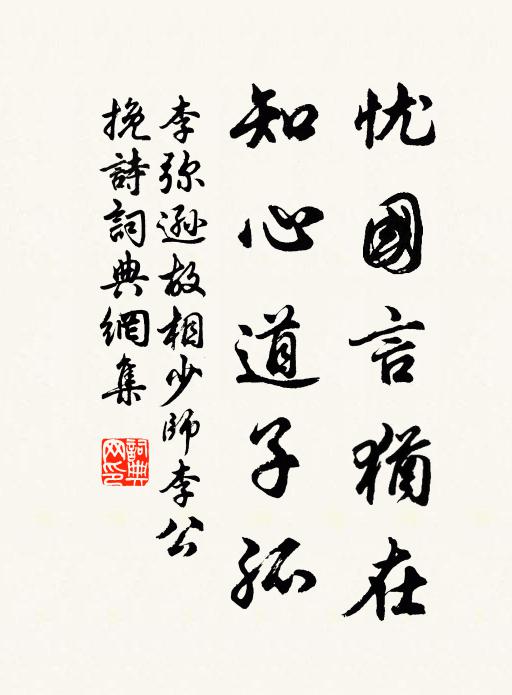 忧國言猶在
知心道子孤
李弥遜故相少師李公
挽詩詞典網集
詞典
网印